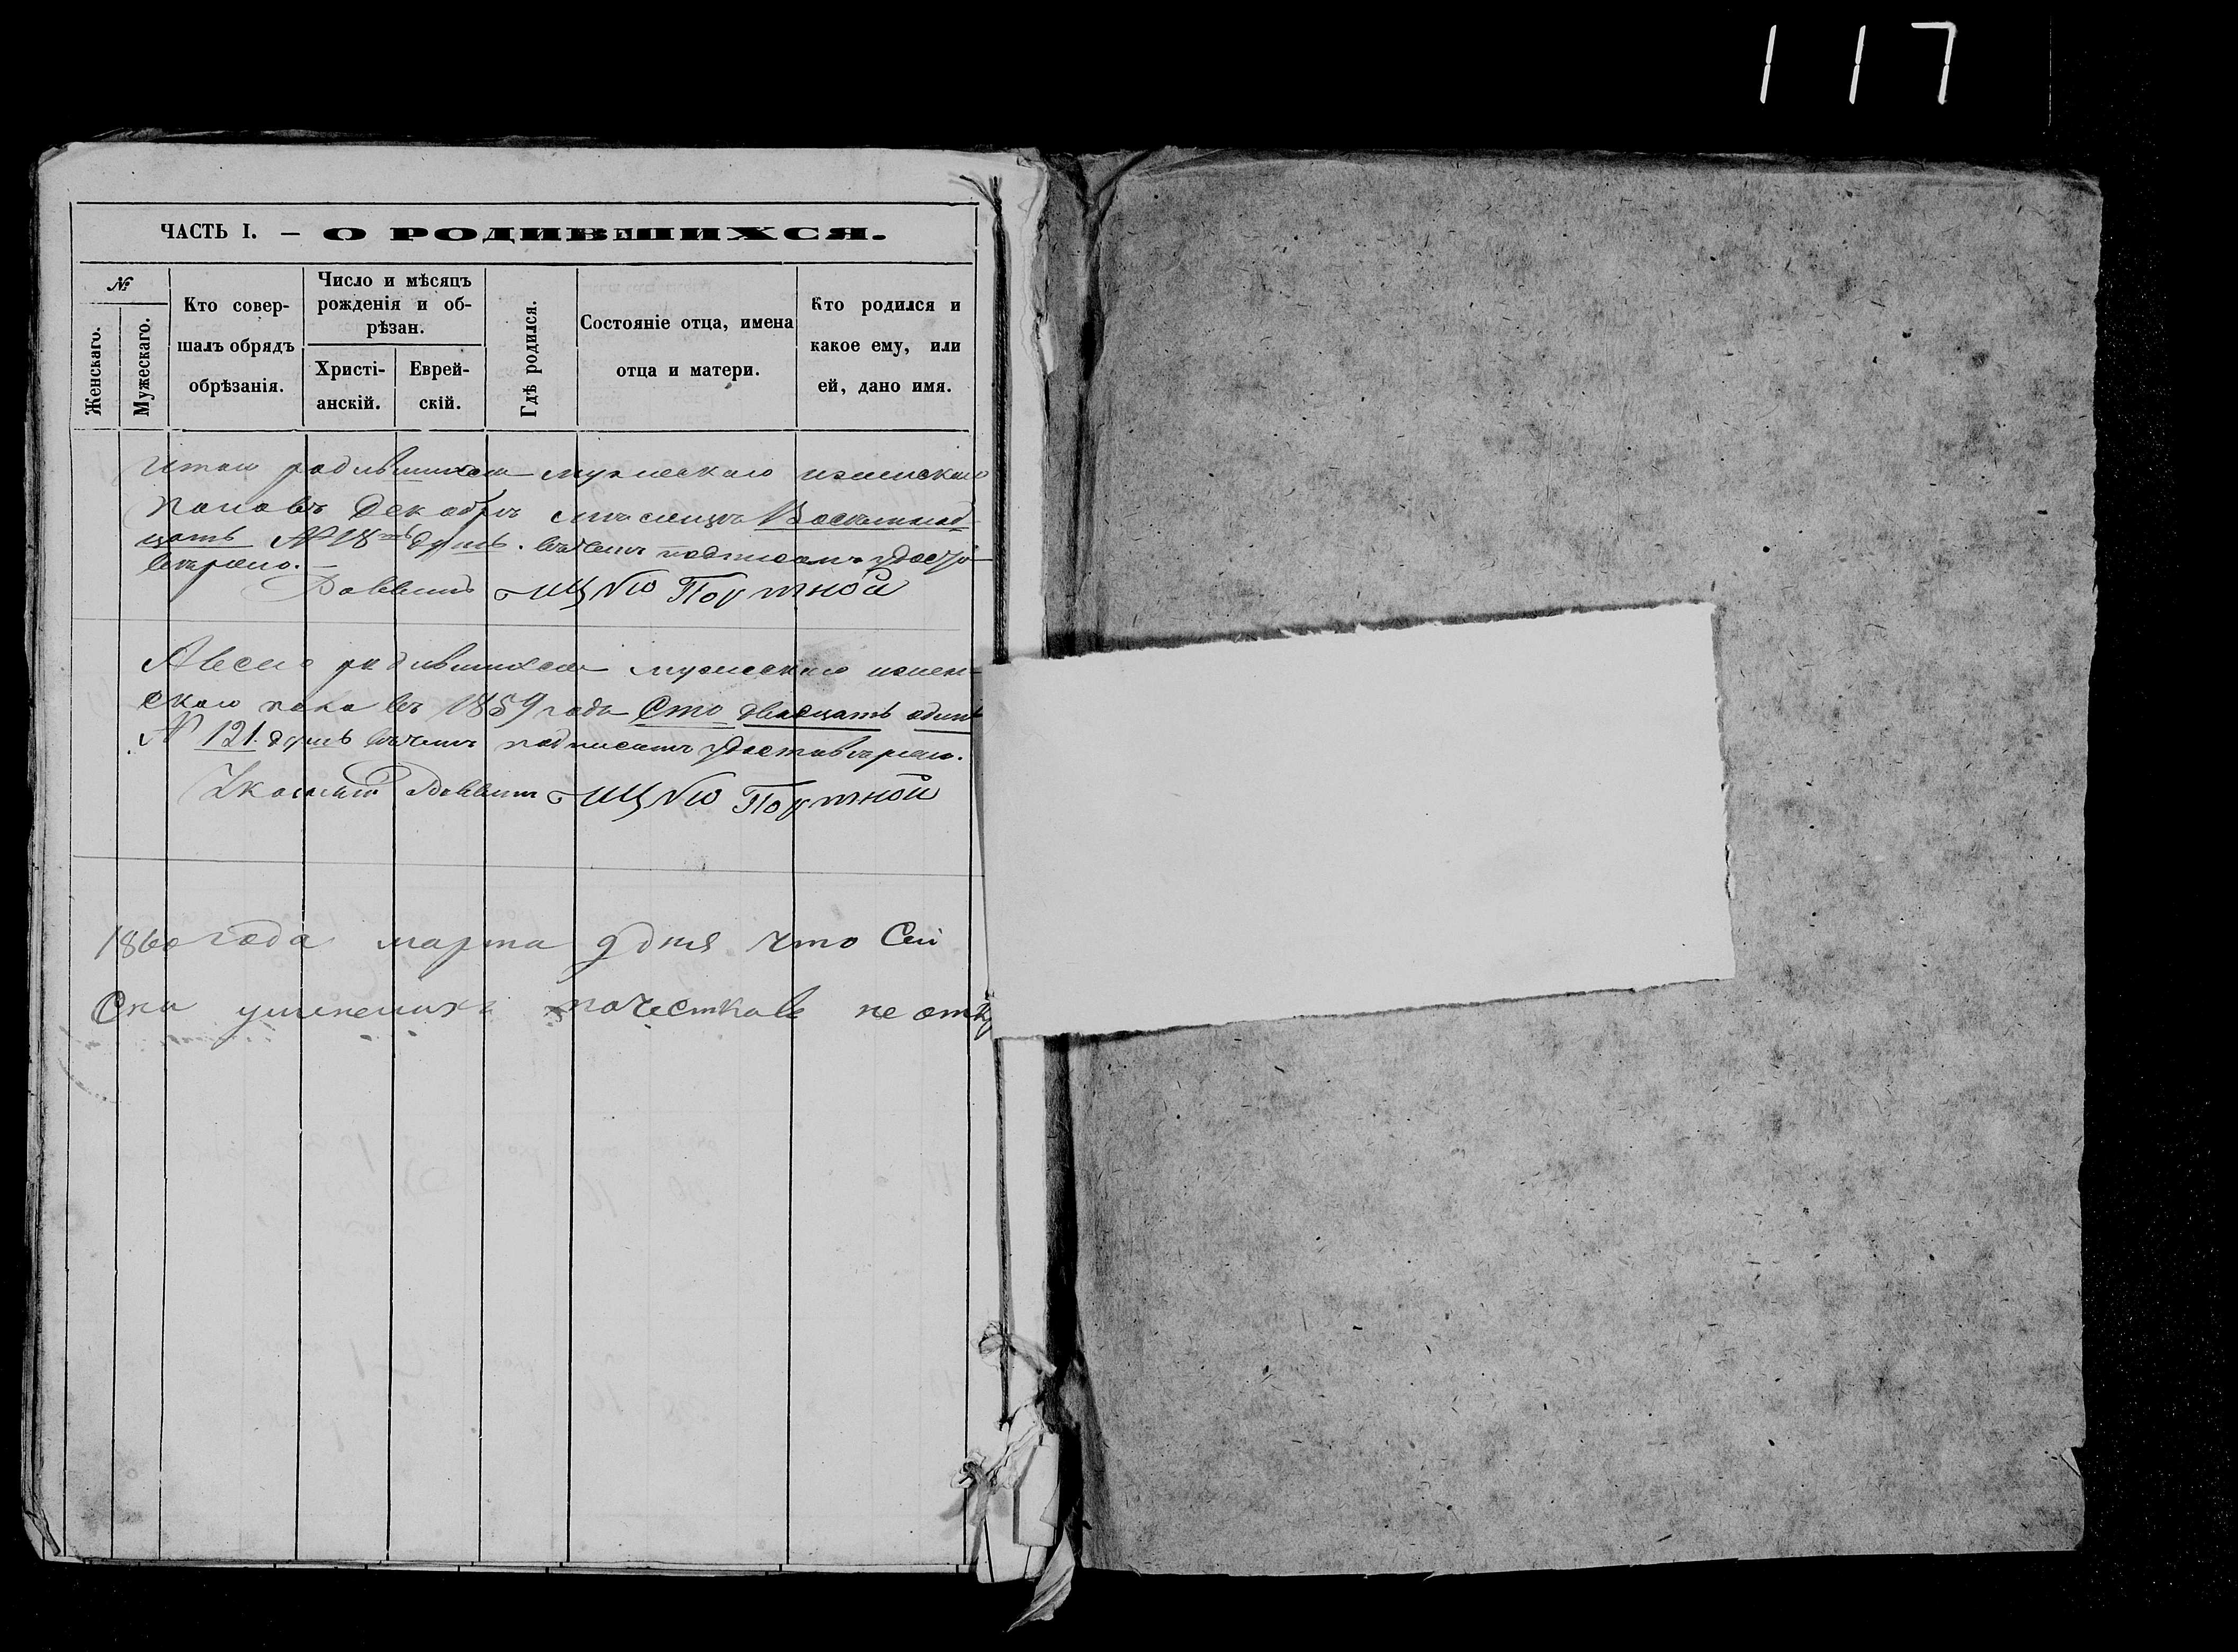 117
ЧАСТЬ I. — О РОДИВШИХСЯ.
№
Женскаго.
Мужескаго.
Кто совер-
шалъ обрядъ
обрѣзанія.
Число и мѣсяцъ
рожденія и об-
рѣзан.
Христі-
анскій.
Еврей-
скій.
Гдѣ родился.
Состояніе отца, имена
отца и матери.
Кто родился и
какое ему, или
ей, дано имя.
Итого родившихся мужескаго иженскаго
половъ Декабрѣ мѣсицѣ Восемнад
цать № 18 душъ. вчемъ подписомъ удосто
вѣряю.
Портной
Авсего родившихся мужескаго ижен
скаго пола въ 1859 годе Сто двадцать одинъ
№ 121 душъ вчемъ подписомъ удостовѣряю.
Портной
1860 года марта 9 дня что Сей